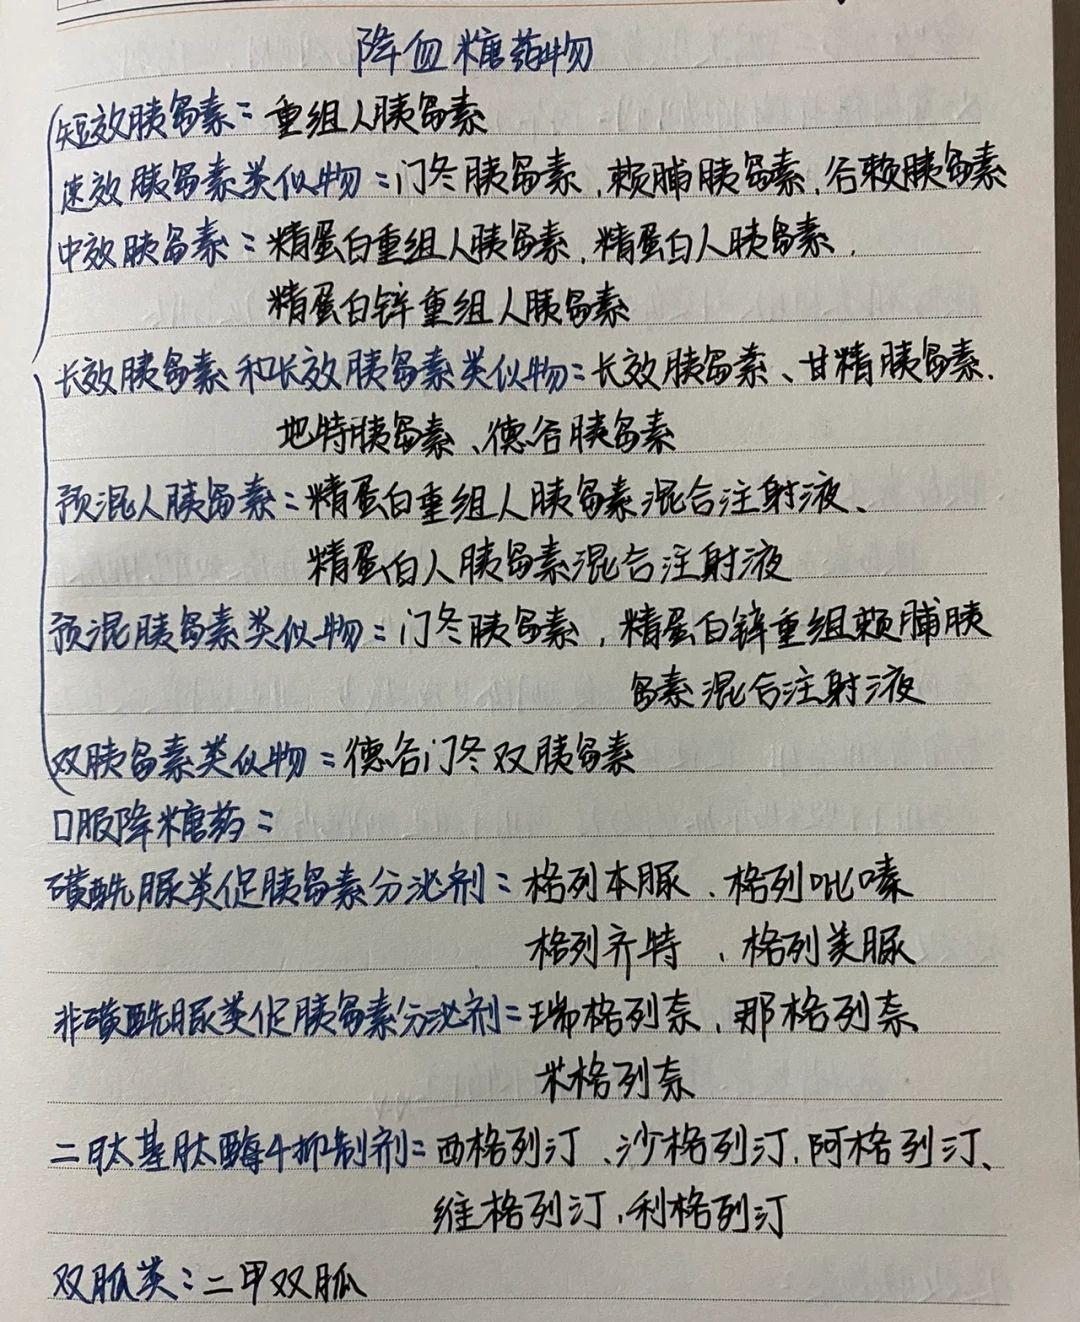 降血糖药物
短效胰岛素：重组人胰岛素
速效胰岛素类似物：门冬胰岛素，赖脯胰岛素，谷赖胰岛素
中效胰岛素：精蛋白重组人胰岛素，精蛋白人胰岛素，
精蛋白锌重组人胰岛素
长效胰岛素和长效胰岛素类似物：长效胰岛素、甘精胰岛素、
地特胰岛素、德谷胰岛素
预混人胰岛素：精蛋白重组人胰岛素混合注射液、
精蛋白人胰岛素混合注射液
预混胰岛素类似物：门冬胰岛素，精蛋白锌重组赖脯胰
岛素混合注射液
双胰岛素类似物：德谷门冬双胰岛素
口服降糖药：
磺酰脲类促胰岛素分泌剂：格列本脲、格列吡嗪
格列齐特、格列美脲
非磺酰脲类促胰岛素分泌剂：瑞格列奈，那格列奈
米格列奈
二肽基肽酶4抑制剂：西格列汀、沙格列汀、阿格列汀、
维格列汀，利格列汀
双胍类：二甲双胍